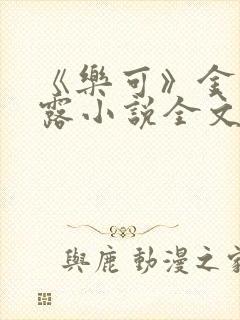 《樂可》金
露小說全文
與鹿 動漫之家